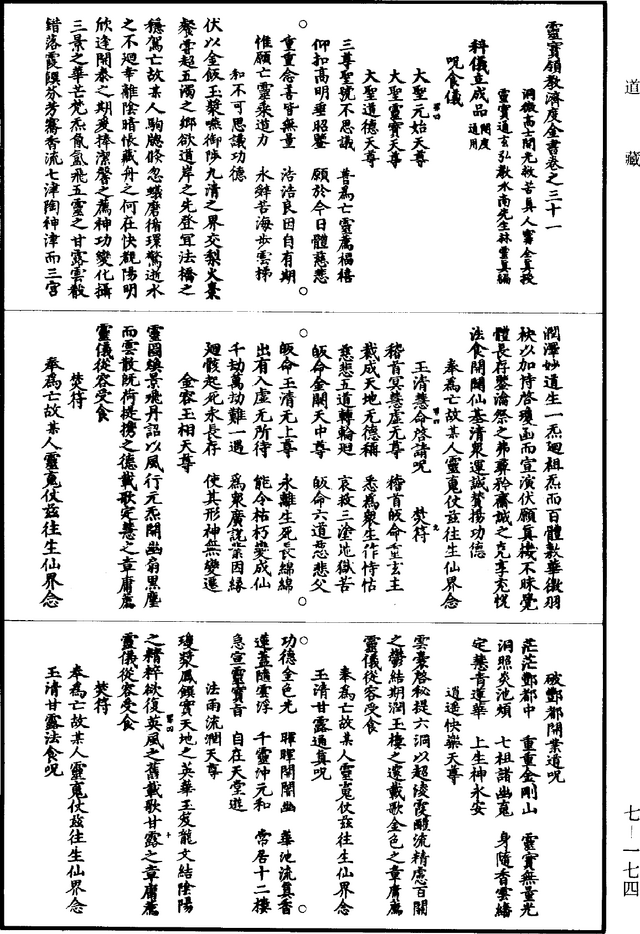 道藏
靈寶領教濟度金書卷之三十一
洞微高士開光救苦真人甯全真授
靈寶通玄弘教水南先生林靈真編
科儀立成品 開度通用
咒食儀
大聖元始天尊
大聖靈寶天尊
大聖道德天尊
三尊聖號不思議 普為亡靈薦福禧
仰扣高明垂昭鑒 願於今日體慈悲
重重念善皆無量 浩浩良因自有期
惟願亡靈乘道力 永辭苦海步雲梯
和不可思議功德
伏以金飯玉漿嚥御陟九清之界交梨火棗
餐嘗超五濁之鄉欲道岸之先登冝法橋之
穩駕亡故某人駒隙倏忽蟻磨循環驚逝水
之不廻幸離陰暗悵藏舟之何在快覩陽明
欣逢開泰之期爰捧潔馨之薦神功變化攝
三景之華芒梵炁氤氲飛五靈之甘露雲散
錯落霞饌芬芳騫香流七津陶神津而三宮
潤澤妙道生一炁廻祖炁而百體敷華徵羽
袂以加持啓瓊函而宣演伏願真樓不昧覺
體長存鑒瀹祭之弗尋矜齋誠之克享充悅
法食開闡仙基清衆運誠贊揚功德
奉為亡故某人靈寬仗兹往生仙界念
玉清慧命啓請呪 焚符
稽首冥慧虛无尊 稽首皈命重玄主
裁成天地元德稱 悉為衆生作恃怙
慈悲五道轉輪廻 哀救三塗地獄苦
皈命金闕天中尊 皈命六道慈悲父
皈命王清元上尊 永離生死長綿綿
出有入虛无所待 能令枯朽變成仙
千劫萬劫難一遇 為衆廣説業因緣
廻骸起死永長存 使其形神無變遷
金容玉相天尊
靈圖煥景飛丹詔以風行元炁開幽扇黒塵
而雲散既荷提携之德載歌定慧之章庸薦
靈儀從容受食
焚符
奉為亡故某人靈寬仗兹往生仙界念
破酆都開業道呪
茫茫酆都中 重重金剛山 靈寶無量光
洞照炎池煩 七祖諸幽寬 身隨香雲旛
定慧青蓮華 上生神永安
逍遥快樂天尊
雲臺啓秘提六洞以超淩霞醆流精慮百關
之鬱結期潤玉樓之邃載歌金色之章庸薦
靈儀從容受食
奉為亡故某人靈寬仗兹往生仙界念
玉清甘露通真呪
功德金色光 暐暐開闇幽 華池流真香
蓮蓋隨雲浮 千靈沖元和 常居十二樓
急宣靈寶旨 自在天堂遊
法雨流潤天尊
瓊漿鳳饌實天地之英華玉笈龍文結陰陽
之精粹欲復英風之舊載歌甘露之章庸薦
靈儀從容受食
焚符
奉為亡故某人靈寬仗兹往生仙界念
玉清甘露法食呪
七—一七四